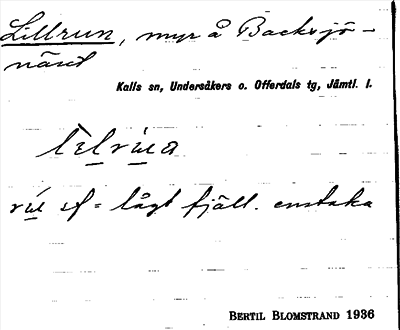 Lillrun, myr å Backsjö-
näset
Kalls sn, Undersåkers o. Offerdals tg, Jämtl. l.
sf = lågt fjäll. enstaka
BERTIL BLOMSTRAND 1936